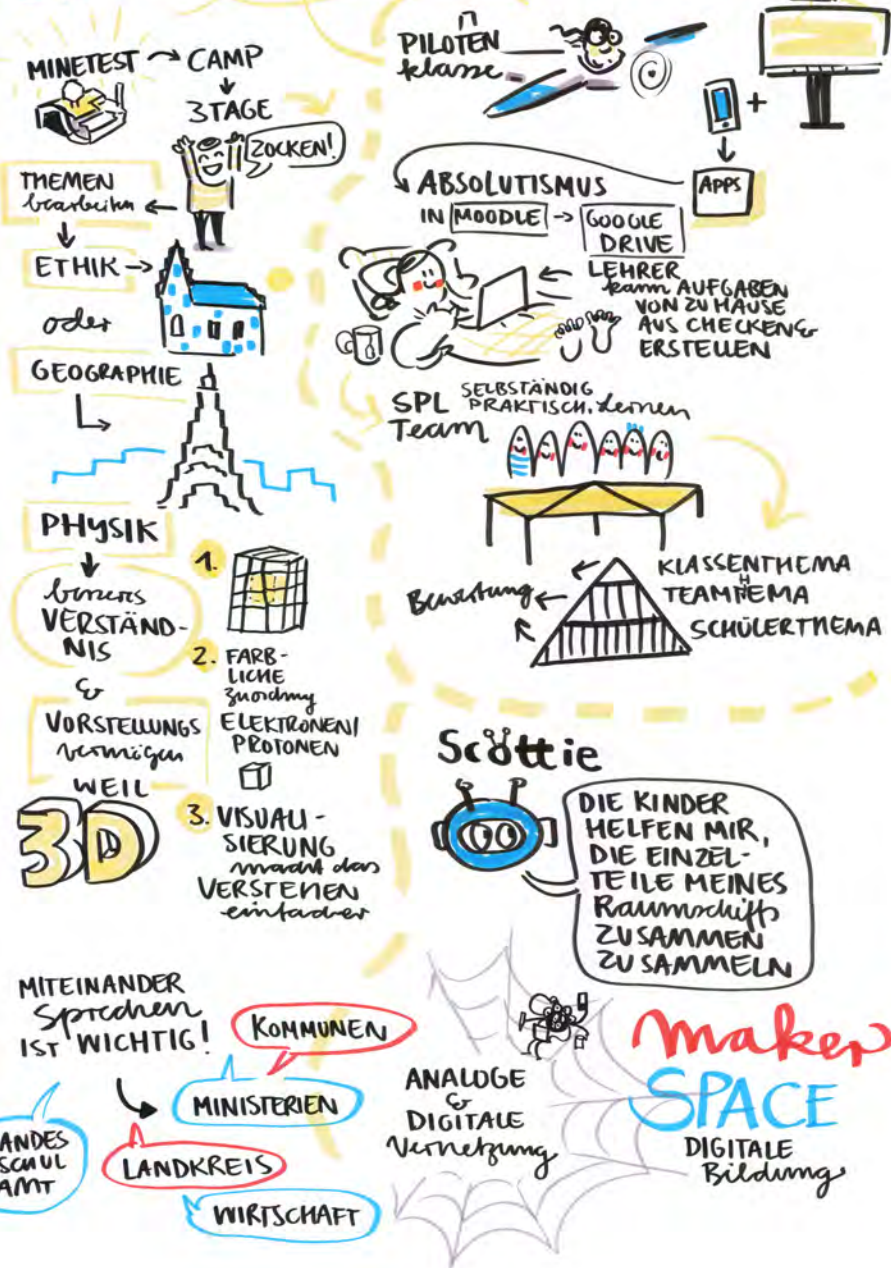 MINETEST → CAMP
3 TAGE
ZOCKEN!
THEMEN
bearbeiten
ETHIK
oder
GEOGRAPHIE
PHYSIK
besseres
VERSTÄND-
NIS
&
VORSTELLUNGS
vermögen
WEIL
3D
1.
2. FARB-
LICHE
Zuordnung
ELEKTRONEN/
PROTONEN
3. VISUALI-
SIERUNG
macht das
VERSTEHEN
einfacher
PILOTEN
klasse
+
APPS
ABSOLUTISMUS
IN MOODLE → GOOGLE
DRIVE
LEHRER
kann AUFGABEN
VON ZU HAUSE
AUS CHECKEN &
ERSTELLEN
SPL SELBSTÄNDIG
PRAKTISCH. Lernen
Team
KLASSENTHEMA
TEAMTHEMA
SCHÜLERTHEMA
Bewertung
Scottie
DIE KINDER
HELFEN MIR,
DIE EINZEL-
TEILE MEINES
Raumschiffs
ZUSAMMEN
ZU SAMMELN
MITEINANDER
Sprechen
IST WICHTIG!
KOMMUNEN
MINISTERIEN
LANDKREIS
WIRTSCHAFT
ANDES
SCHUL
AMT
ANALOGE
&
DIGITALE
Vernetzung
maker
SPACE
DIGITALE
Bildung